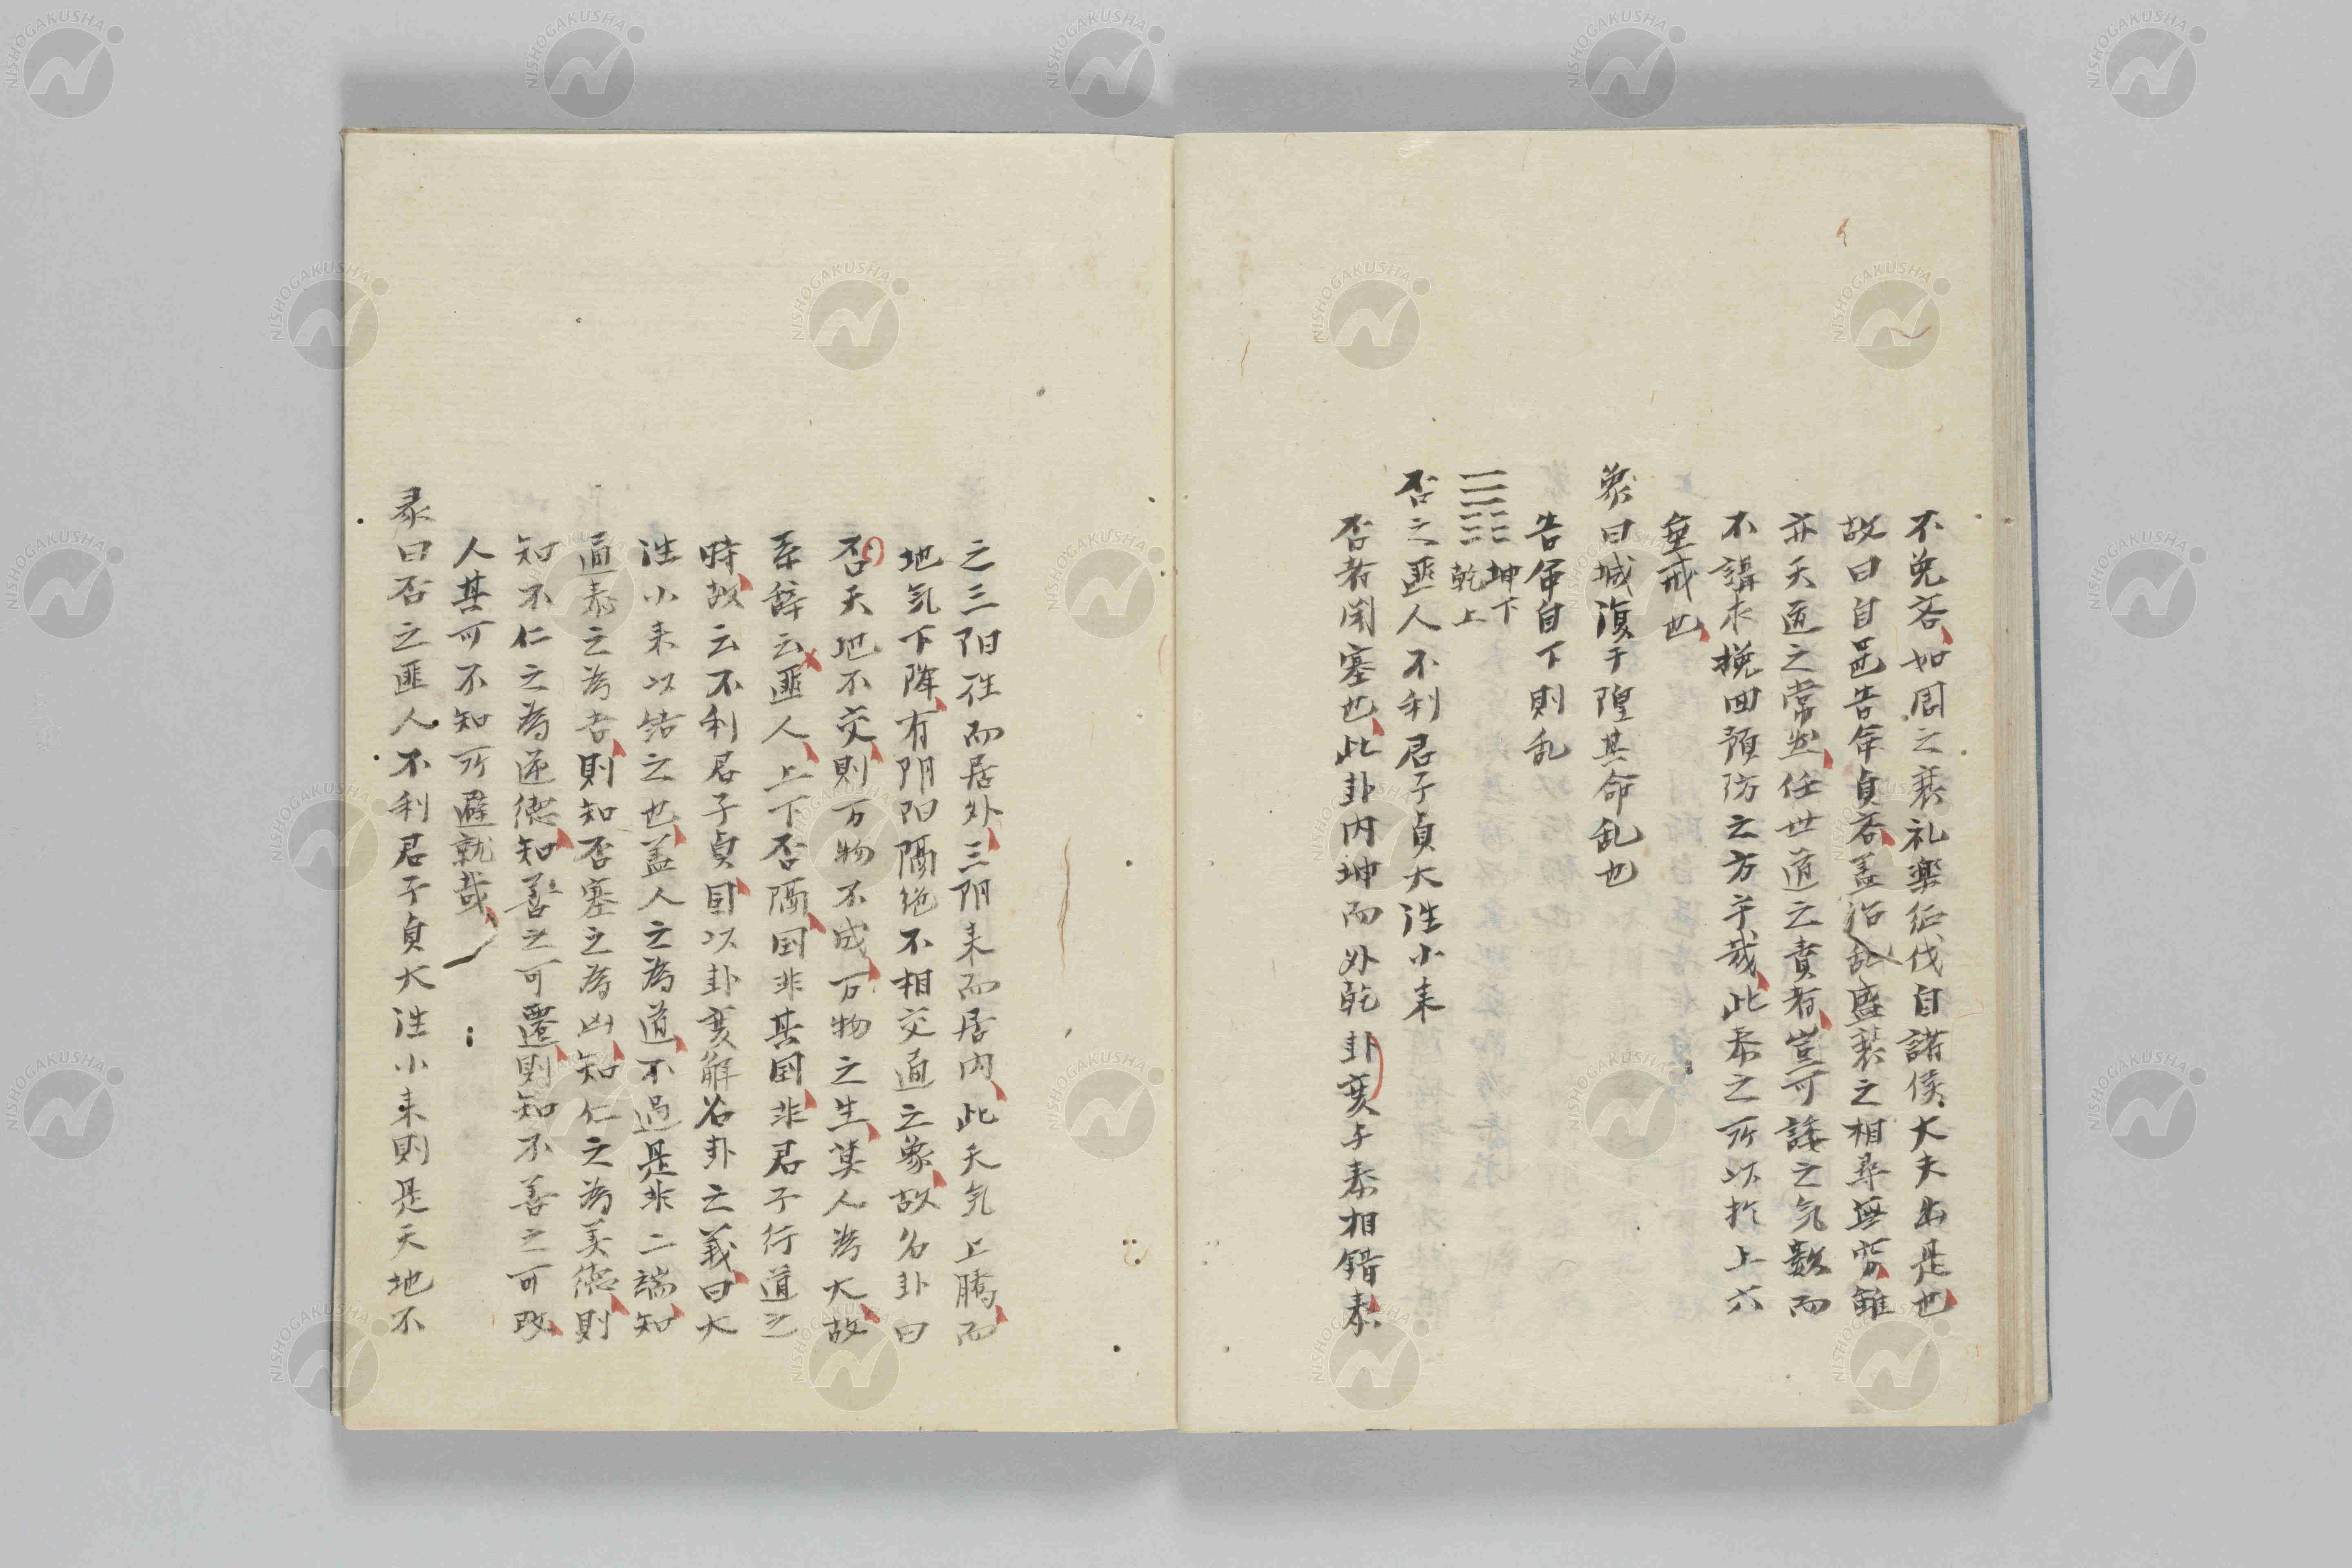 不免吝如周之衰礼楽征伐自諸侯大夫出是也
故曰自邑告命貞吝盖治乱盛衰之相尋無窮雖
亦天运之常然任世道之責者豈可諉之気数而
不講求挽回預防之方乎哉此泰之所以於上六
垂戒也
象曰城復于隍其命乱也
告命自下則乱
坤下
乾上
否之匪人不利君子貞大往小来
否者閉塞也此卦内坤而外乾卦変与泰相錯泰
之三阳往而居外三阴来而居内此天気上騰而
地気下降有阴阳隔绝不相交通之象故名卦曰
否天地不交則万物不成万物之生莫人為大故
系辞云匪人上下否隔国非其国非君子行道之
時故云不利君子貞因以卦変解名卦之義曰大
往小来以结之也盖人之為道不過是非二端知
通泰之為吉則知否塞之為凶知仁之為美徳則
知不仁之為逆徳知善之可遷則知不善之可改
人其可不知所避就哉
彖曰否之匪人不利君子貞大往小来則是天地不
NISHOGAKUSHA